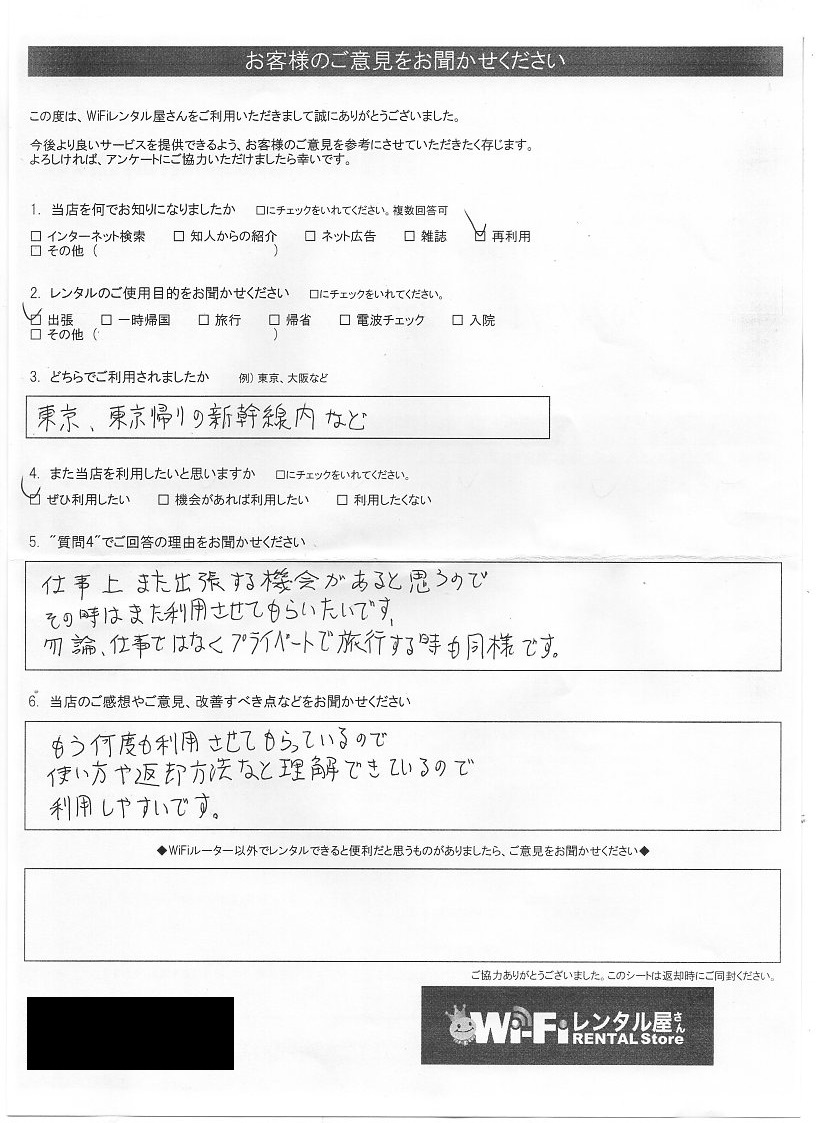 お客様のご意見をお聞かせください
この度は、WiFiレンタル屋さんをご利用いただきまして誠にありがとうございました。
今後より良いサービスを提供できるよう、お客様のご意見を参考にさせていただきたく存じます。
よろしければ、アンケートにご協力いただけましたら幸いです。
1. 当店を何でお知りになりましたか □にチェックをいれてください。複数回答可
□ インターネット検索 □ 知人からの紹介 □ ネット広告 □ 雑誌 ☑ 再利用
□ その他 ( )
2. レンタルのご使用目的をお聞かせください □にチェックをいれてください。
☑ 出張 □ 一時帰国 □ 旅行 □ 帰省 □ 電波チェック □ 入院
□ その他 ( )
3. どちらでご利用されましたか 例) 東京、大阪など
東京、東京帰りの新幹線内など
4. また当店を利用したいと思いますか □にチェックをいれてください。
☑ ぜひ利用したい □ 機会があれば利用したい □ 利用したくない
5. "質問4"でご回答の理由をお聞かせください
仕事上また出張する機会があると思うので
その時はまた利用させてもらいたいです、
勿論、仕事ではなくプライベートで旅行する時も同様です。
6. 当店のご感想やご意見、改善すべき点などをお聞かせください
もう何度も利用させてもらっているので
使い方や返却方法なと理解できているので
利用しやすいです。
◆WiFiルーター以外でレンタルできると便利だと思うものがありましたら、ご意見をお聞かせください◆
ご協力ありがとうございました。このシートは返却時にご同封ください。
Wi-Fiレンタル屋さん
RENTAL Store